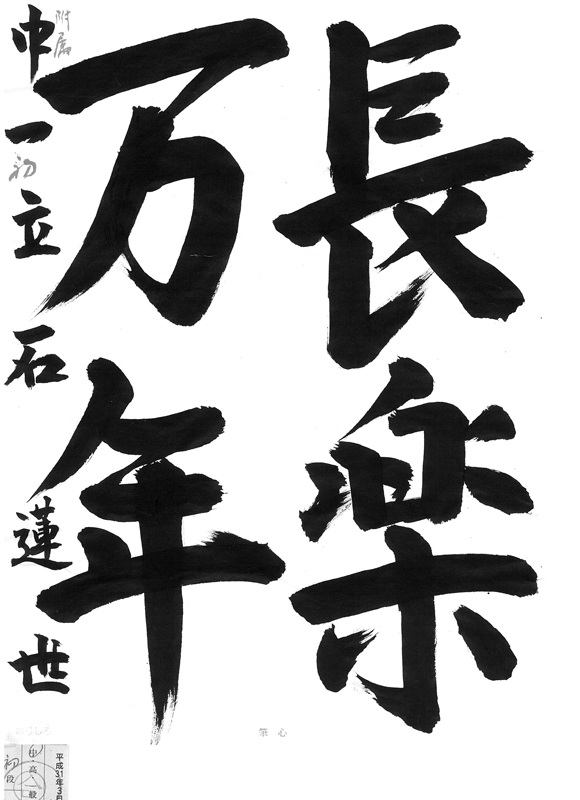 長楽
万年
附属
中一 立石蓮世
初
心筆
平成31年3月
中・高・一般
初段